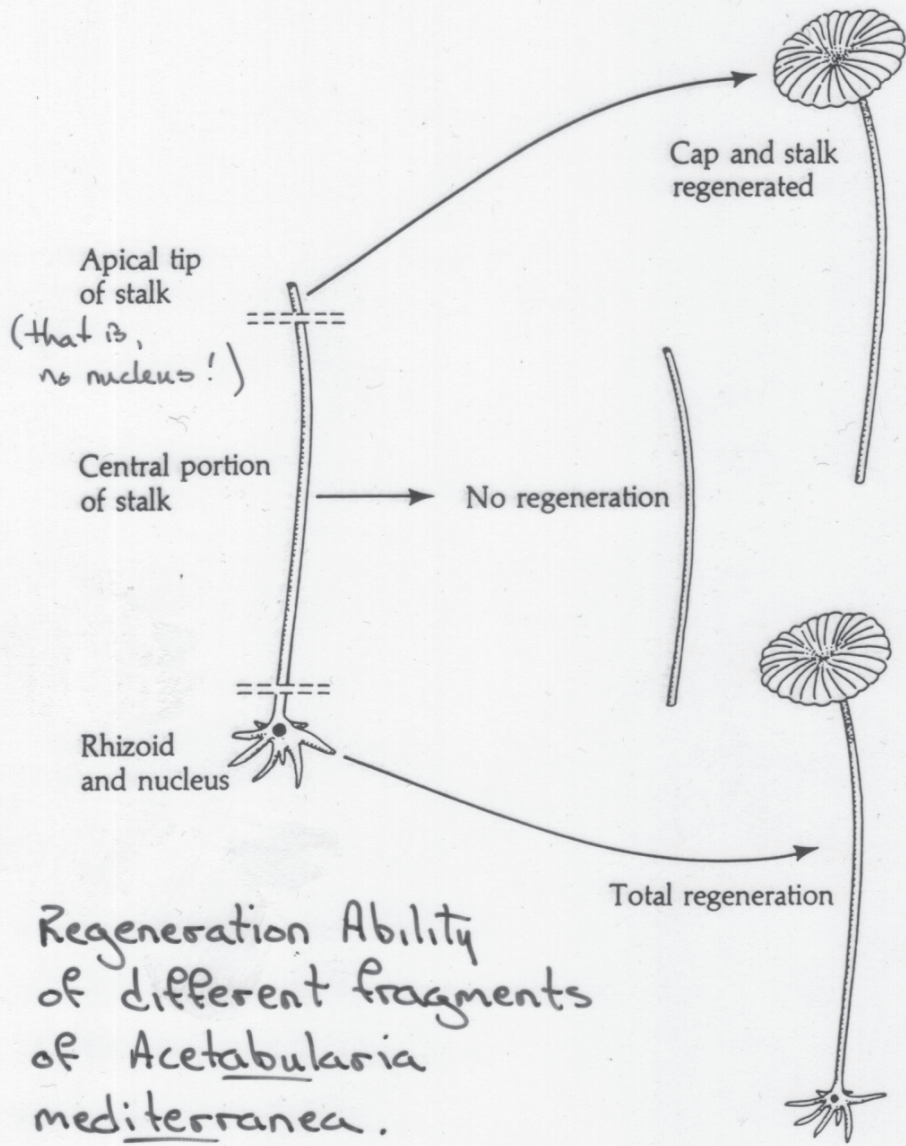 Cap and stalk
regenerated
Apical tip
of stalk
(that is,
no nucleus!)
Central portion
of stalk
No regeneration
Rhizoid
and nucleus
Total regeneration
Regeneration Ability
of different fragments
of Acetabularia
mediterranea.